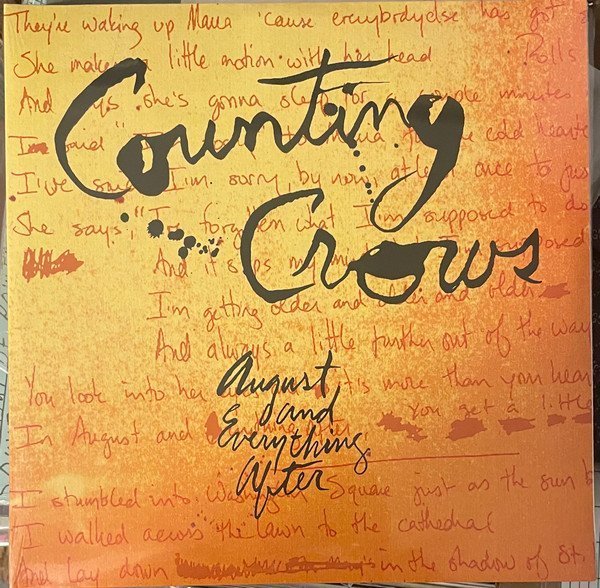 They're waking up Maria 'cause everybody else has got
She makes a little motion with her head Rolls
And says she's gonna sleep for a couple minutes
I said "I to Maria for the cold hearte
I've said I'm sorry by now, at least once to jus
She says, "I've forgotten what I'm supposed to do
And it slips my mind supposed
I'm getting older and older and older
And always a little further out of the way
You look into her it's more than your hear
In August and everything after, You get a little
I stumbled into Washington Square just as the sun b
I walked across the lawn to the cathedral
And lay down in the shadow of St.
Counting
Crows
August
and
Everything
After